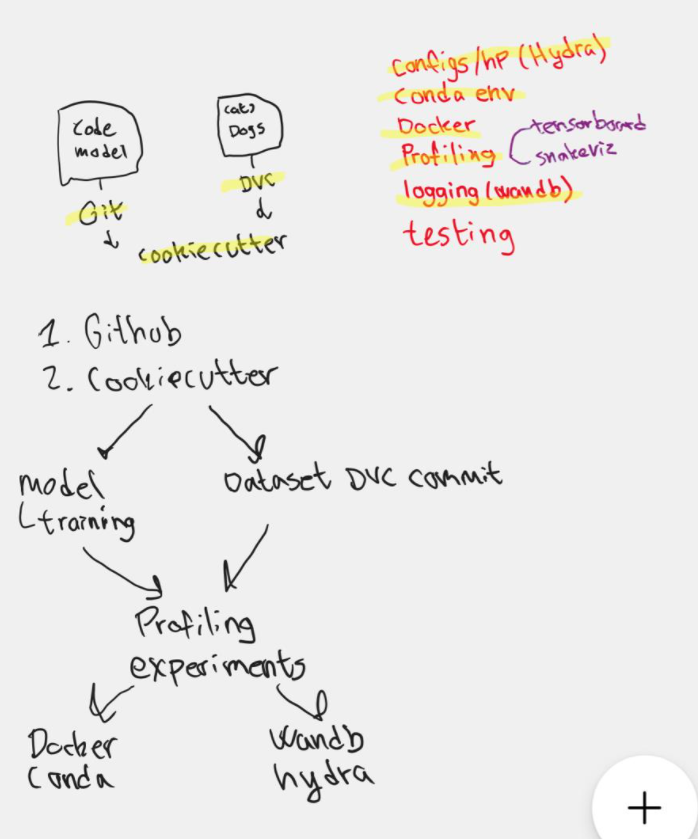 Code
model
Git
cats
Dogs
DVC
cookiecutter
Configs/hp (Hydra)
Conda env
Docker
Profiling
tensorboard
snakeviz
logging (wandb)
testing
1. Github
2. Cookiecutter
model
training
Dataset DVC commit
Profiling
experiments
Docker
Conda
Wandb
hydra